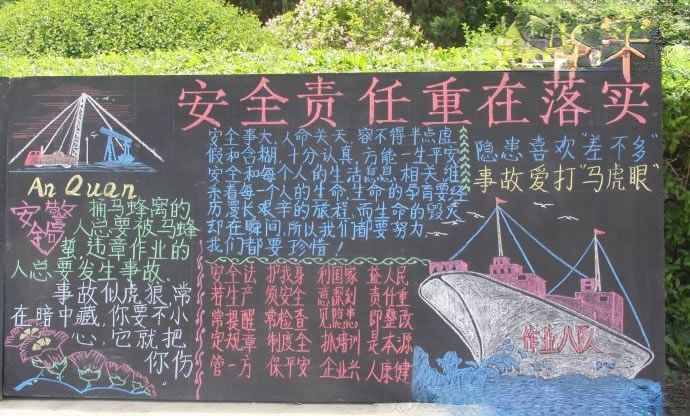 安全责任重在落实
An Quan
安全警言
捅马蜂窝的
人总要被马蜂
蜇,违章作业的
人总要发生事故.
事故似虎狼,常
在暗中藏,你要不小
心,它就把
你伤
安全事大,人命关天,容不得半点虚
假和含糊,十分认真,方能一生平安
安全和每个人的生活息息相关,维
系着每一个人的生命,生命的孕育要经
历漫长艰辛的旅程,而生命的毁灭
却在瞬间,所以我们都要努力,
我们都要珍惜!
隐患喜欢"差不多"
事故爱打"马虎眼"
安全法 护我身 利国家 益人民
若生产 须安全 意深刻 责任重
常提醒 常检查 见隐患 即整改
定规章 制度全 抓培训 是本源
管一方 保平安 企业兴 人康健
作业八队